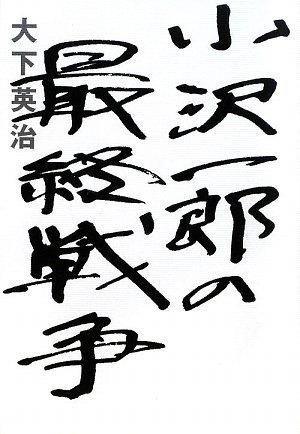 小沢一郎の
最終戦争
大下英治